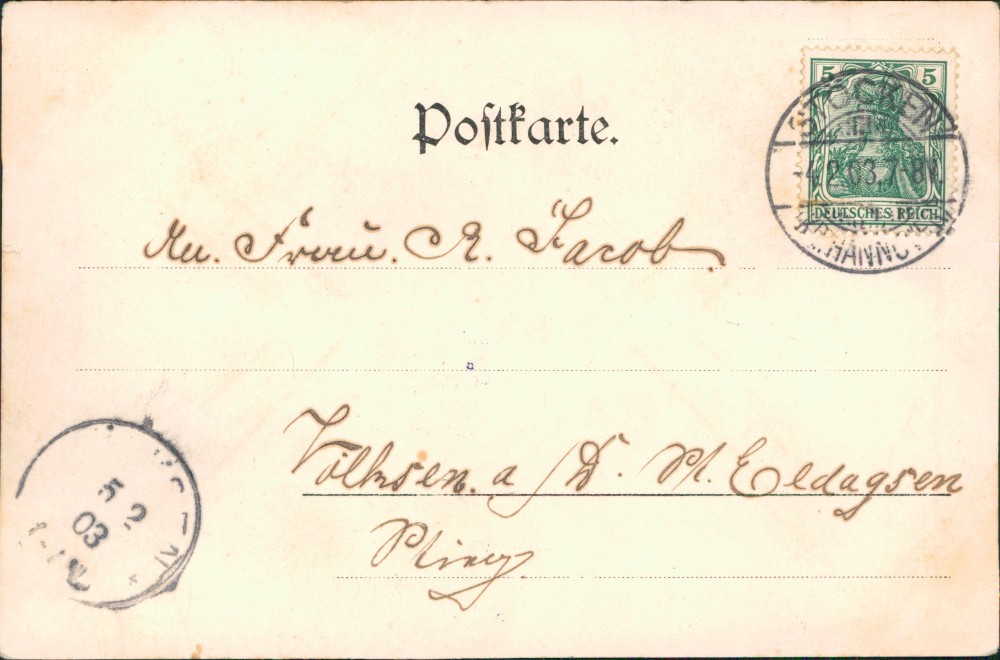 5 5
STÖCKEN
4.2.03.7-8N.
HANNO
DEUTSCHES REICH
Postkarte.
An. Frau. A. Jacob.
Völksen. a/D. St. Eldagsen
5 2
03